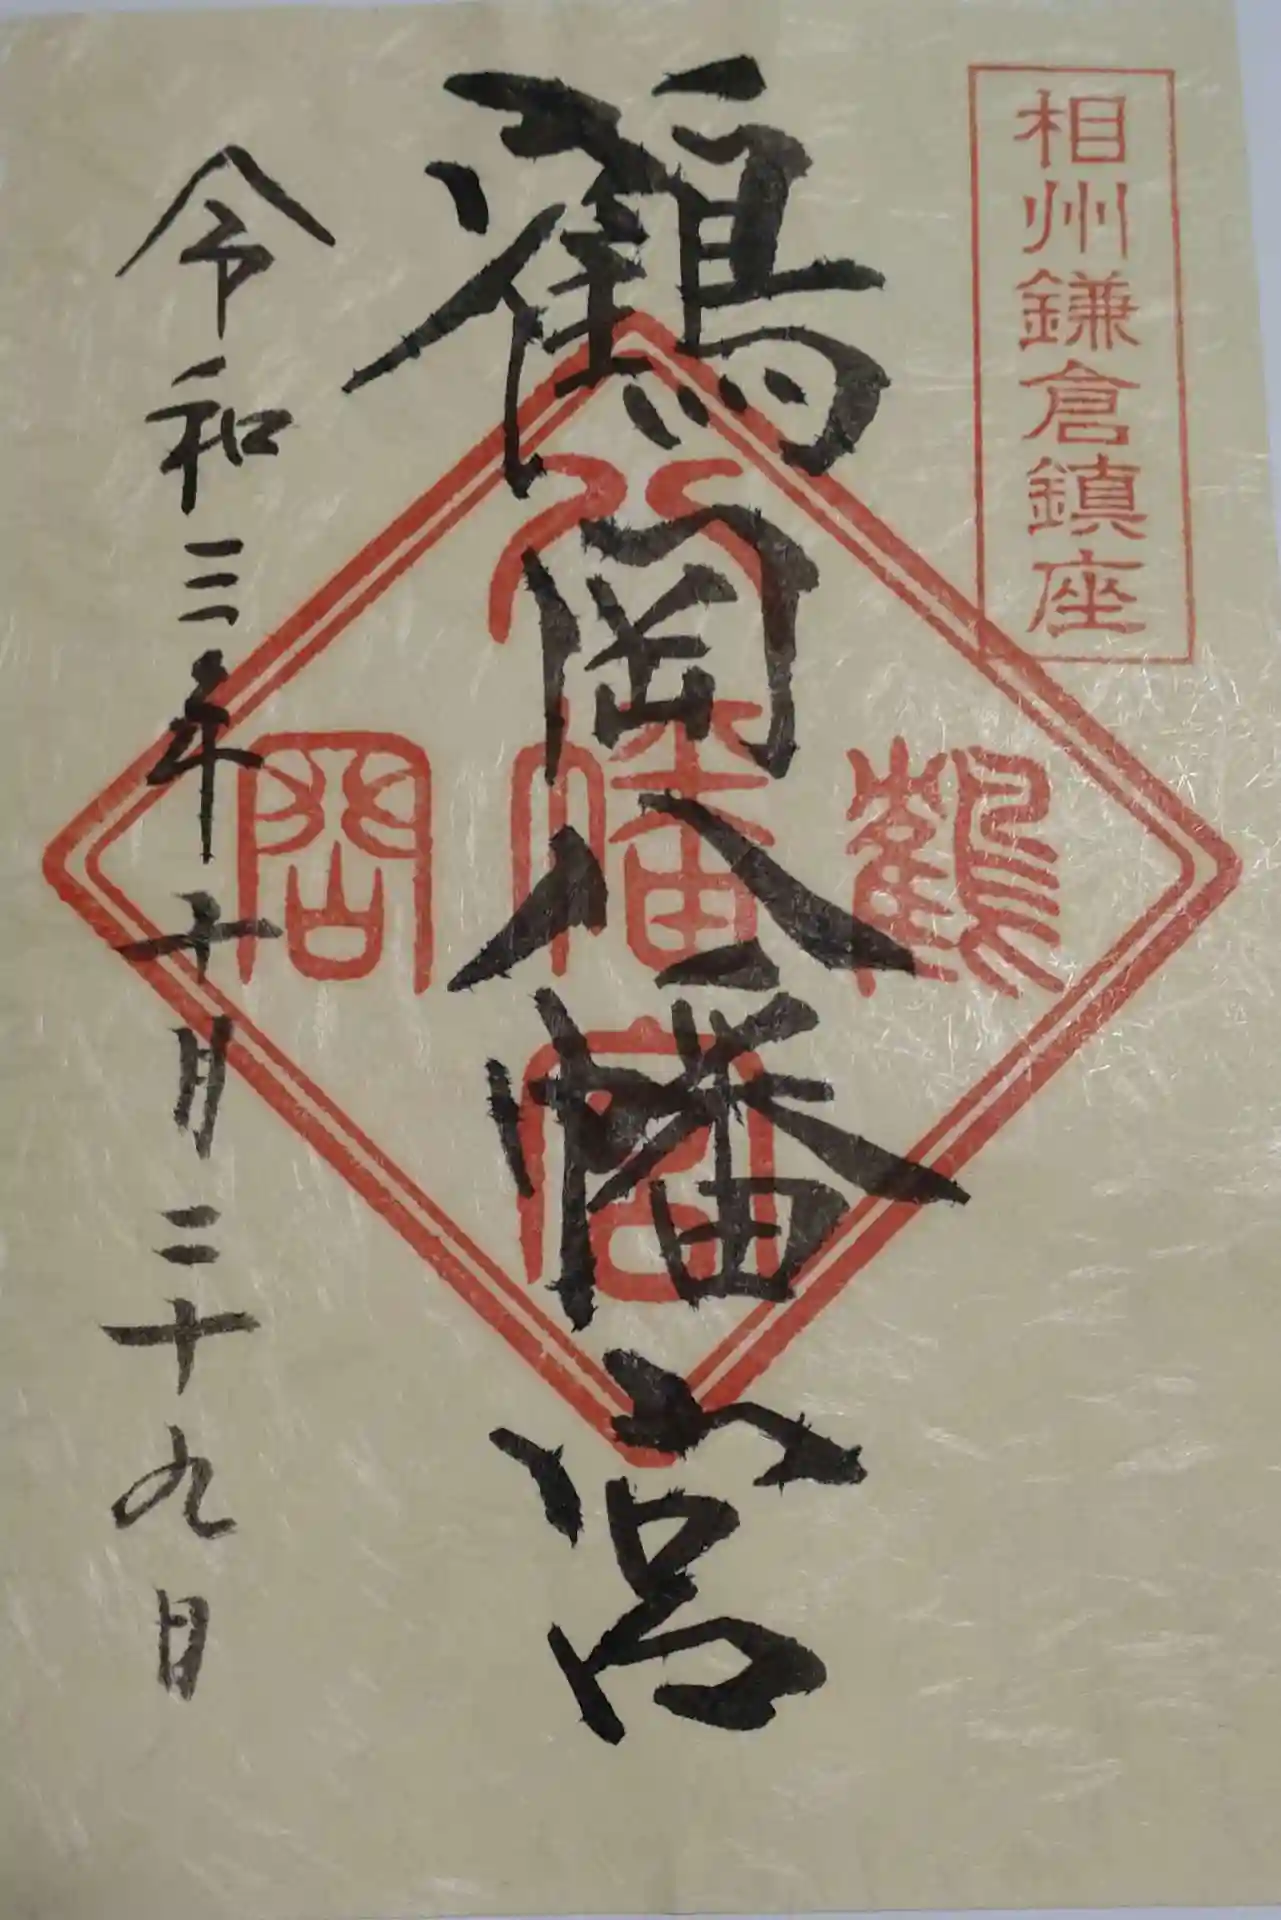 相州鎌倉鎮座
鶴岡八幡宮
鶴
八幡宮
岡
令和三年十月二十九日